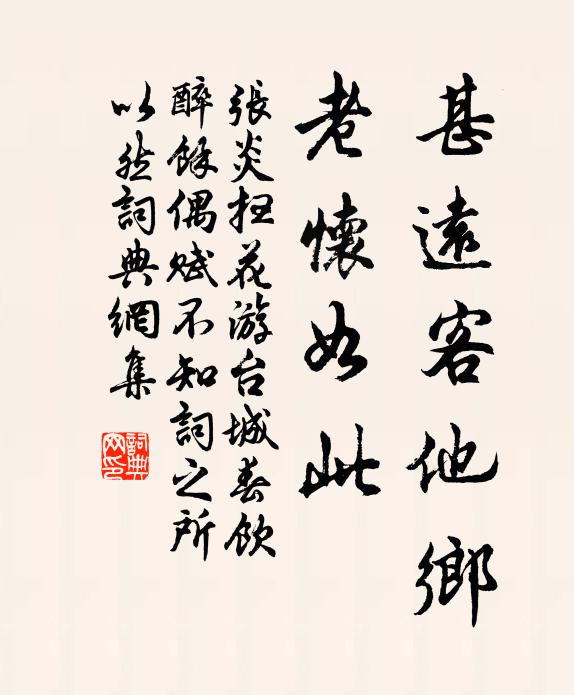 甚遠客他鄉
老懷如此
張炎扫花游台城春飲
醉餘偶賦不知詞之所
以然詞典網集
詞典
网印